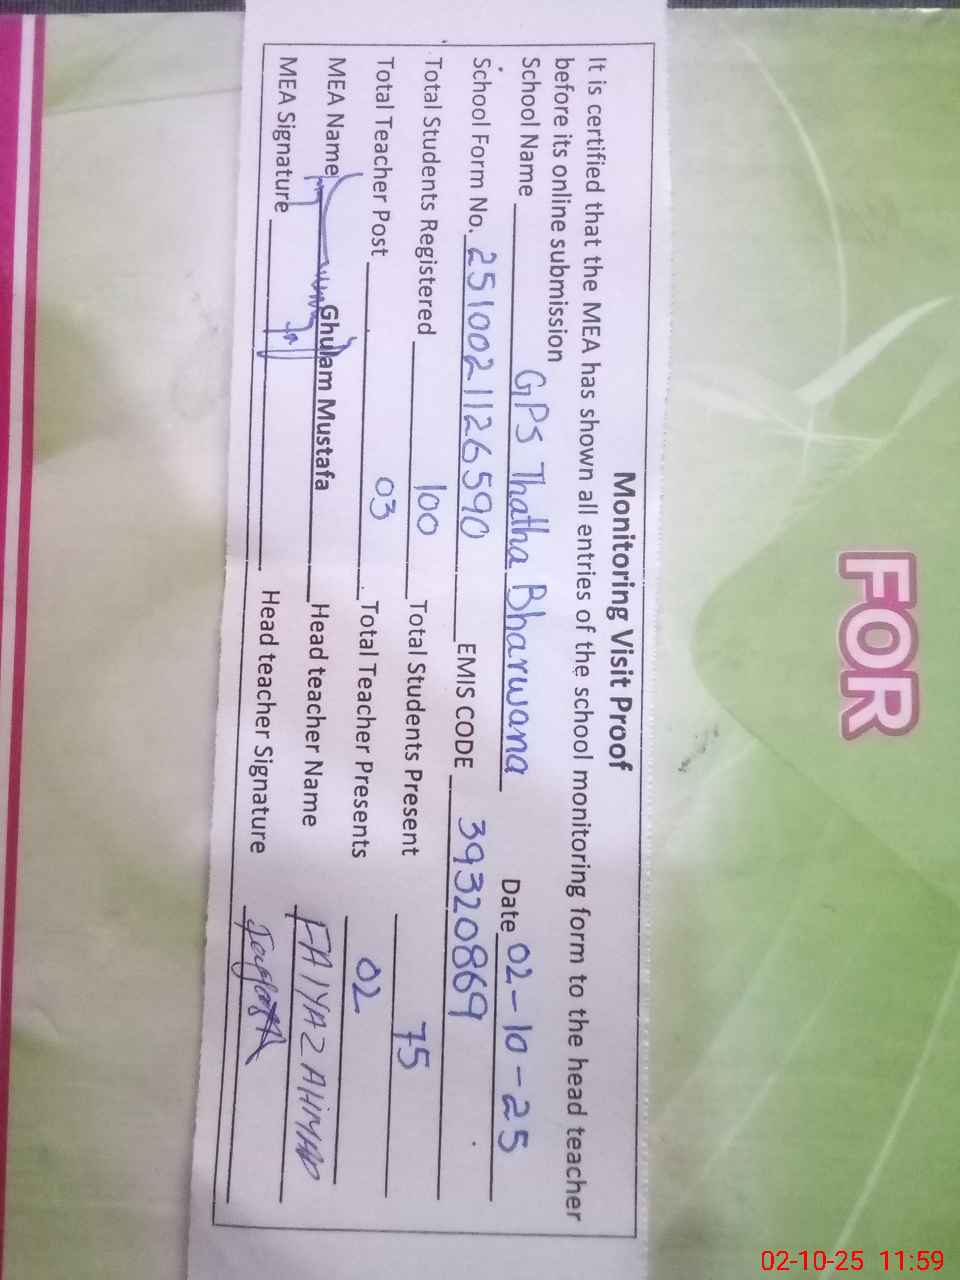 Monitoring Visit Proof
It is certified that the MEA has shown all entries of the school monitoring form to the head teacher
before its online submission
School Name GPS Thatha Bharwana Date 02-10-25
School Form No. 2510021126590 EMIS CODE 39320869
Total Students Registered 100 Total Students Present 75
Total Teacher Post 03 Total Teacher Presents 02
MEA Name Ghulam Mustafa Head teacher Name FAIYAZ AHMAD
MEA Signature Head teacher Signature
FOR
02-10-25 11:59